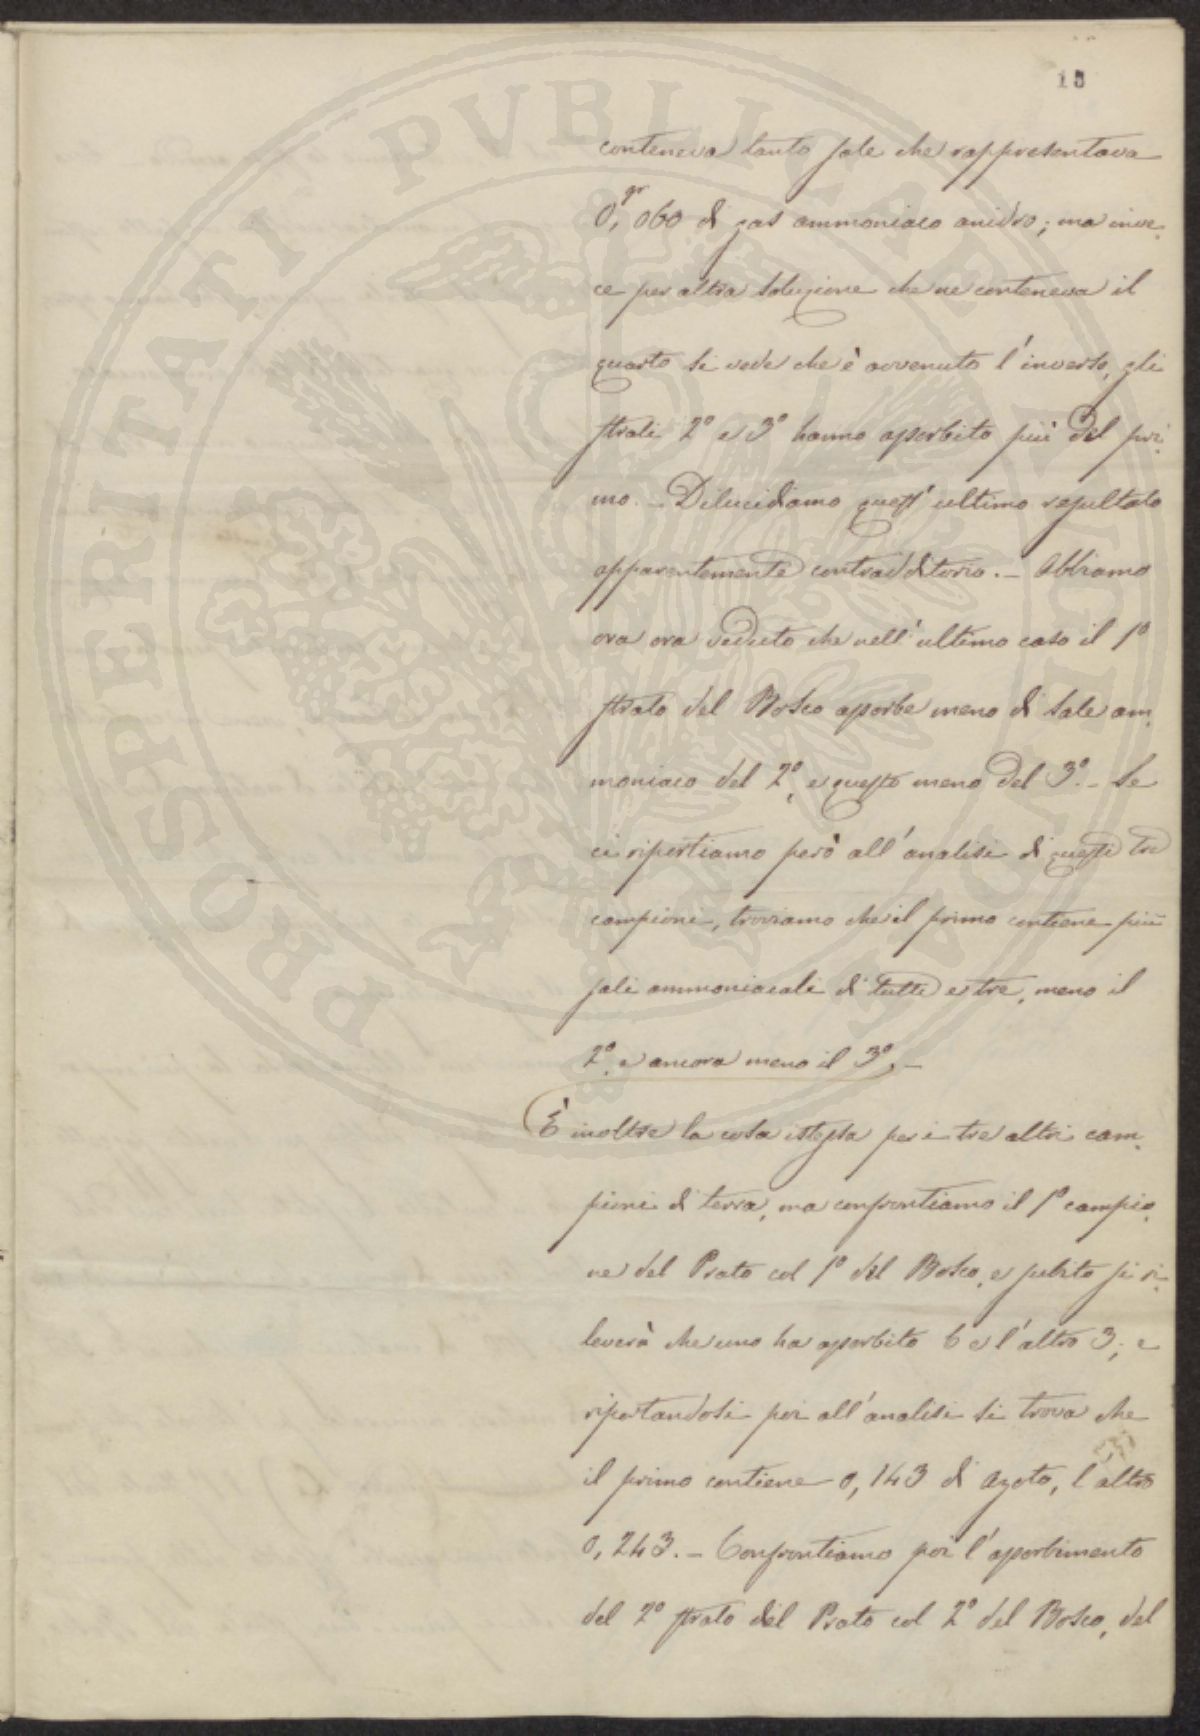 PROSPERITATI PVBLICAE AVGENDAE
15
conteneva tanto sale che rappresentava
0,gr 060 di gas ammoniaco anidro; ma inve-
ce per altra soluzione che ne conteneva il
quarto si vede che è avvenuto l'inverso, gli
strati 2º e 3º hanno assorbito più del pri-
mo. – Dilucidiamo quest'ultimo resultato
apparentemente contradditorio. – Abbiamo
ora ora veduto che nell'ultimo caso il 1º
strato del Bosco assorbe meno di sale am-
moniaco del 2º, e questo meno del 3º. – Se
ci riportiamo però all'analisi di questi tre
campioni, troviamo che il primo contiene più
sali ammoniacali di tutti e tre, meno il
2º, e ancora meno il 3º. –
È inoltre la cosa istessa per i tre altri cam-
pioni di terra, ma confrontiamo il 1º campio-
ne del Prato col 1º del Bosco, e subito si ri-
leverà che uno ha assorbito 6 e l'altro 3, e
riportandosi poi all'analisi si trova che
il primo contiene 0,143 di Azoto, l'altro
0,243. – Confrontiamo poi l'assorbimento
del 2º strato del Prato col 2º del Bosco, del